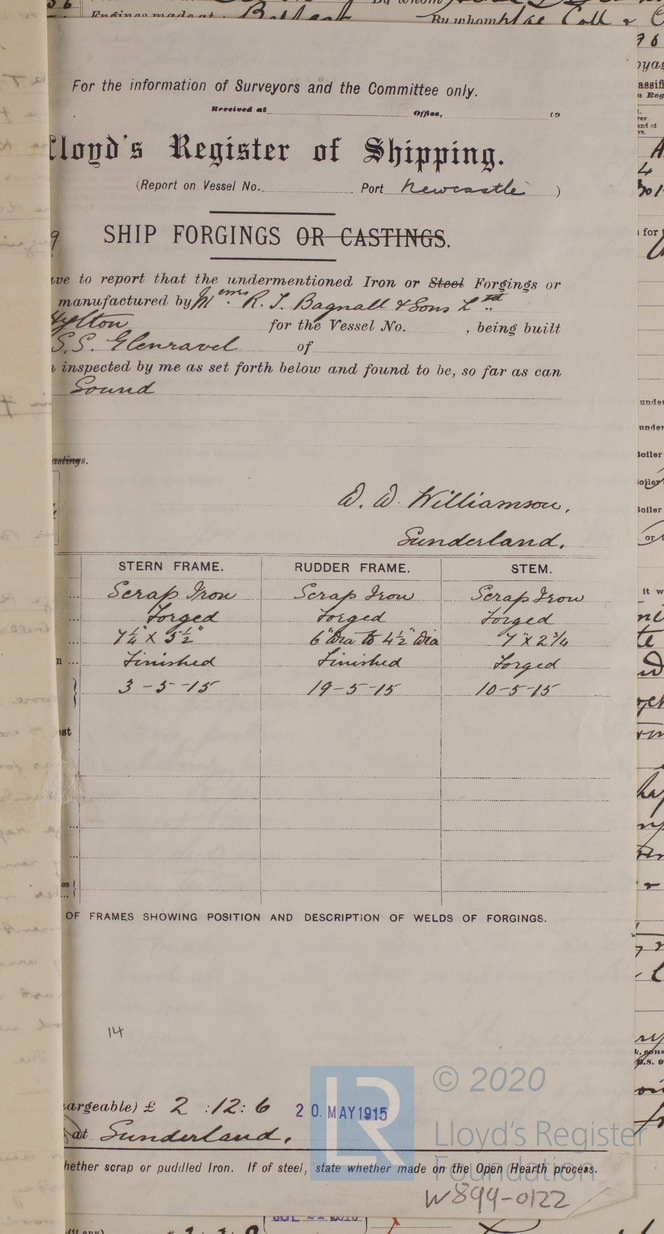 Engines made at Belfast By whom Mac Coll & C
For the information of Surveyors and the Committee only.
Received at Office, 19
Lloyd's Register of Shipping.
(Report on Vessel No. Port Newcastle )
9 SHIP FORGINGS OR CASTINGS.
ve to report that the undermentioned Iron or Steel Forgings or
manufactured by Messrs R. J. Bagnall & Sons Ltd
Hylton for the Vessel No. , being built
S.S. Glenravel of
inspected by me as set forth below and found to be, so far as can
Sound
astings.
W. Williamson,
Sunderland.
STERN FRAME. RUDDER FRAME. STEM.
Scrap Iron Scrap Iron Scrap Iron
Forged Forged Forged
7¼" x 5½" 6" dia to 4½" dia 7" x 2¾
Finished Finished Forged
3-5-15 19-5-15 10-5-15
OF FRAMES SHOWING POSITION AND DESCRIPTION OF WELDS OF FORGINGS.
14
argeable) £ 2 : 12 : 6 20. MAY 1915
at Sunderland.
hether scrap or puddled Iron. If of steel, state whether made on the Open Hearth process.
LR © 2020
Lloyd's Register
Foundation
W899-0122